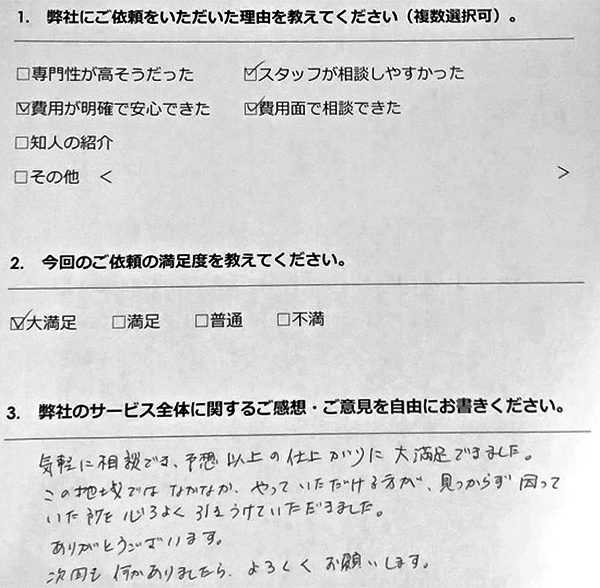 1. 弊社にご依頼をいただいた理由を教えてください（複数選択可）。
□専門性が高そうだった ☑スタッフが相談しやすかった
☑費用が明確で安心できた ☑費用面で相談できた
□知人の紹介
□その他 < >
2. 今回のご依頼の満足度を教えてください。
☑大満足 □満足 □普通 □不満
3. 弊社のサービス全体に関するご感想・ご意見を自由にお書きください。
気軽に相談でき、予想以上の仕上がりに大満足できました。
この地域ではなかなか、やっていただける方が、見つからず困って
いた所を心よく引きうけていただきました。
ありがとうございます。
次回も何かありましたら、よろしくお願いします。